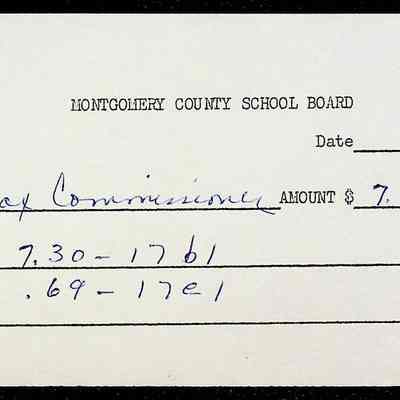 MONTGOMERY COUNTY SCHOOL BOARD
Date
ax Commissioner AMOUNT $ 7.
7.30 - 17 b1
.69 - 17e1